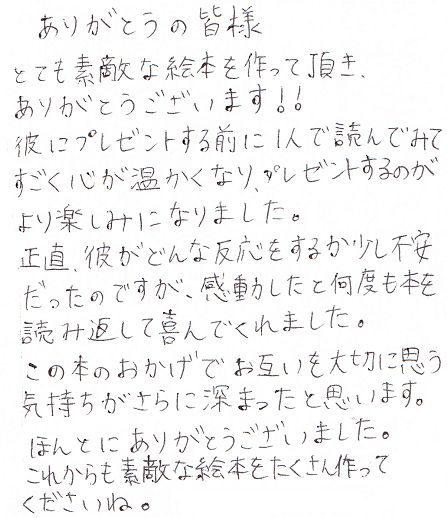 ありがとうの皆様
とても素敵な絵本を作って頂き、
ありがとうございます!!
彼にプレゼントする前に1人で読んでみて
すごく心が温かくなり、プレゼントするのが
より楽しみになりました。
正直、彼がどんな反応をするか少し不安
だったのですが、感動したと何度も本を
読み返して喜んでくれました。
この本のおかげでお互いを大切に思う
気持ちがさらに深まったと思います。
ほんとにありがとうございました。
これからも素敵な絵本をたくさん作って
くださいね。